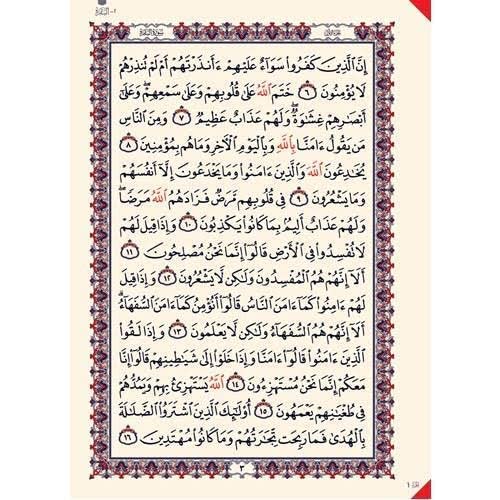 ٢- البقرة
سورة البقرة
الجزء الأول
إِنَّ الَّذِينَ كَفَرُوا سَوَاءٌ عَلَيْهِمْ ءَأَنذَرْتَهُمْ أَمْ لَمْ تُنذِرْهُمْ
لَا يُؤْمِنُونَ ٦ خَتَمَ اللَّهُ عَلَىٰ قُلُوبِهِمْ وَعَلَىٰ سَمْعِهِمْ ۖ وَعَلَىٰ
أَبْصَارِهِمْ غِشَاوَةٌ ۖ وَلَهُمْ عَذَابٌ عَظِيمٌ ٧ وَمِنَ النَّاسِ
مَن يَقُولُ ءَامَنَّا بِاللَّهِ وَبِالْيَوْمِ الْآخِرِ وَمَا هُم بِمُؤْمِنِينَ ٨
يُخَادِعُونَ اللَّهَ وَالَّذِينَ ءَامَنُوا وَمَا يَخْدَعُونَ إِلَّا أَنفُسَهُمْ
وَمَا يَشْعُرُونَ ٩ فِي قُلُوبِهِم مَّرَضٌ فَزَادَهُمُ اللَّهُ مَرَضًا ۖ
وَلَهُمْ عَذَابٌ أَلِيمٌ بِمَا كَانُوا يَكْذِبُونَ ١٠ وَإِذَا قِيلَ لَهُمْ
لَا تُفْسِدُوا فِي الْأَرْضِ قَالُوا إِنَّمَا نَحْنُ مُصْلِحُونَ ١١
أَلَا إِنَّهُمْ هُمُ الْمُفْسِدُونَ وَلَٰكِن لَّا يَشْعُرُونَ ١٢ وَإِذَا قِيلَ
لَهُمْ ءَامِنُوا كَمَا ءَامَنَ النَّاسُ قَالُوا أَنُؤْمِنُ كَمَا ءَامَنَ السُّفَهَاءُ ۗ
أَلَا إِنَّهُمْ هُمُ السُّفَهَاءُ وَلَٰكِن لَّا يَعْلَمُونَ ١٣ وَإِذَا لَقُوا
الَّذِينَ ءَامَنُوا قَالُوا ءَامَنَّا وَإِذَا خَلَوْا إِلَىٰ شَيَاطِينِهِمْ قَالُوا إِنَّا
مَعَكُمْ إِنَّمَا نَحْنُ مُسْتَهْزِءُونَ ١٤ اللَّهُ يَسْتَهْزِئُ بِهِمْ وَيَمُدُّهُمْ
فِي طُغْيَانِهِمْ يَعْمَهُونَ ١٥ أُولَٰئِكَ الَّذِينَ اشْتَرَوُا الضَّلَالَةَ
بِالْهُدَىٰ فَمَا رَبِحَت تِّجَارَتُهُمْ وَمَا كَانُوا مُهْتَدِينَ ١٦
٣